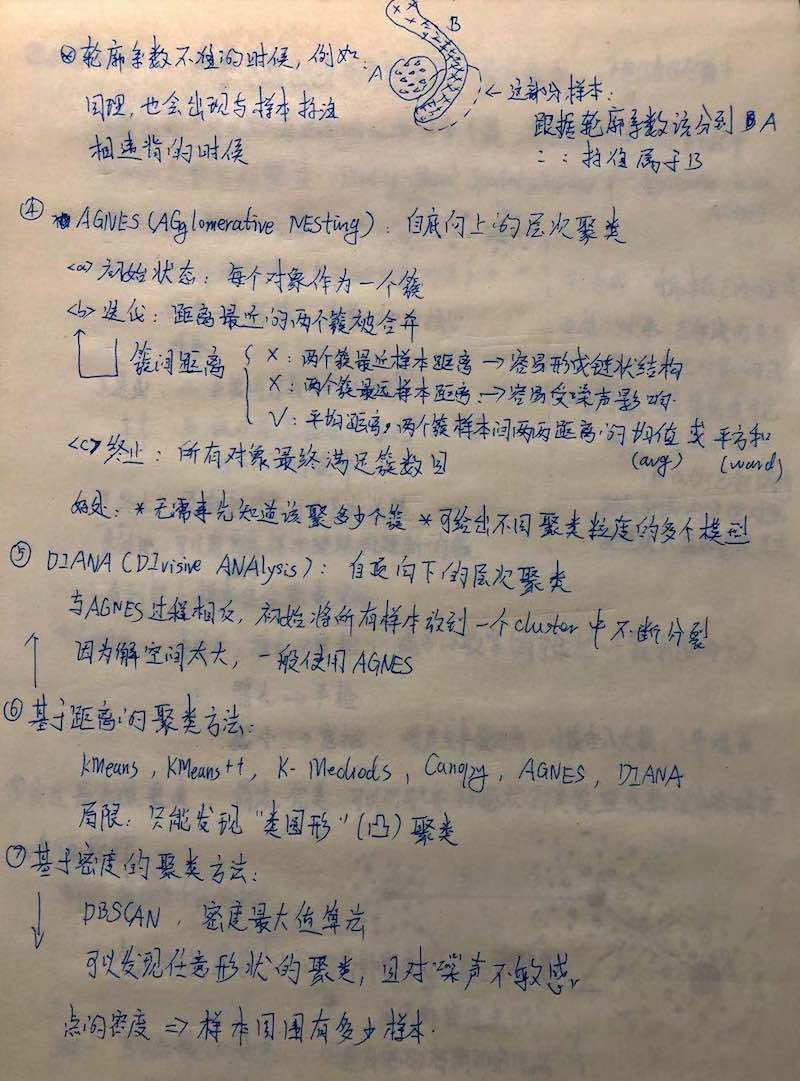 B
⊗轮廓系数不准的时候,例如:
A
同理,也会出现与样本标注
相违背的时候
← 这部分样本:
跟据轮廓系数该分到 A
:: 标值属于B
④ AGNES(AGglomerative NESting): 自底向上的层次聚类
<a> 初始状态: 每个对象作为一个簇
<b> 迭代: 距离最近的两个簇被合并
簇间距离
X: 两个簇最近样本距离 → 容易形成链状结构
X: 两个簇最远样本距离: → 容易受噪声影响.
√: 平均距离, 两个簇样本间两两距离的均值 或 平方和
(avg) (ward)
<c> 终止: 所有对象最终满足簇数目
好处: * 无需事先知道该聚多少个簇 * 可给出不同聚类粒度的多个模型
⑤ DIANA(DIvisive ANAlysis): 自顶向下的层次聚类
与AGNES过程相反, 初始将所有样本放到一个cluster中不断分裂
因为解空间太大, 一般使用AGNES
⑥ 基于距离的聚类方法:
KMeans, KMeans++, K-Mediods, Canopy, AGNES, DIANA
局限: 只能发现"类圆形"(凸)聚类
⑦ 基于密度的聚类方法:
DBSCAN, 密度最大值算法
可以发现任意形状的聚类, 且对噪声不敏感,
点的密度 => 样本周围有多少样本.